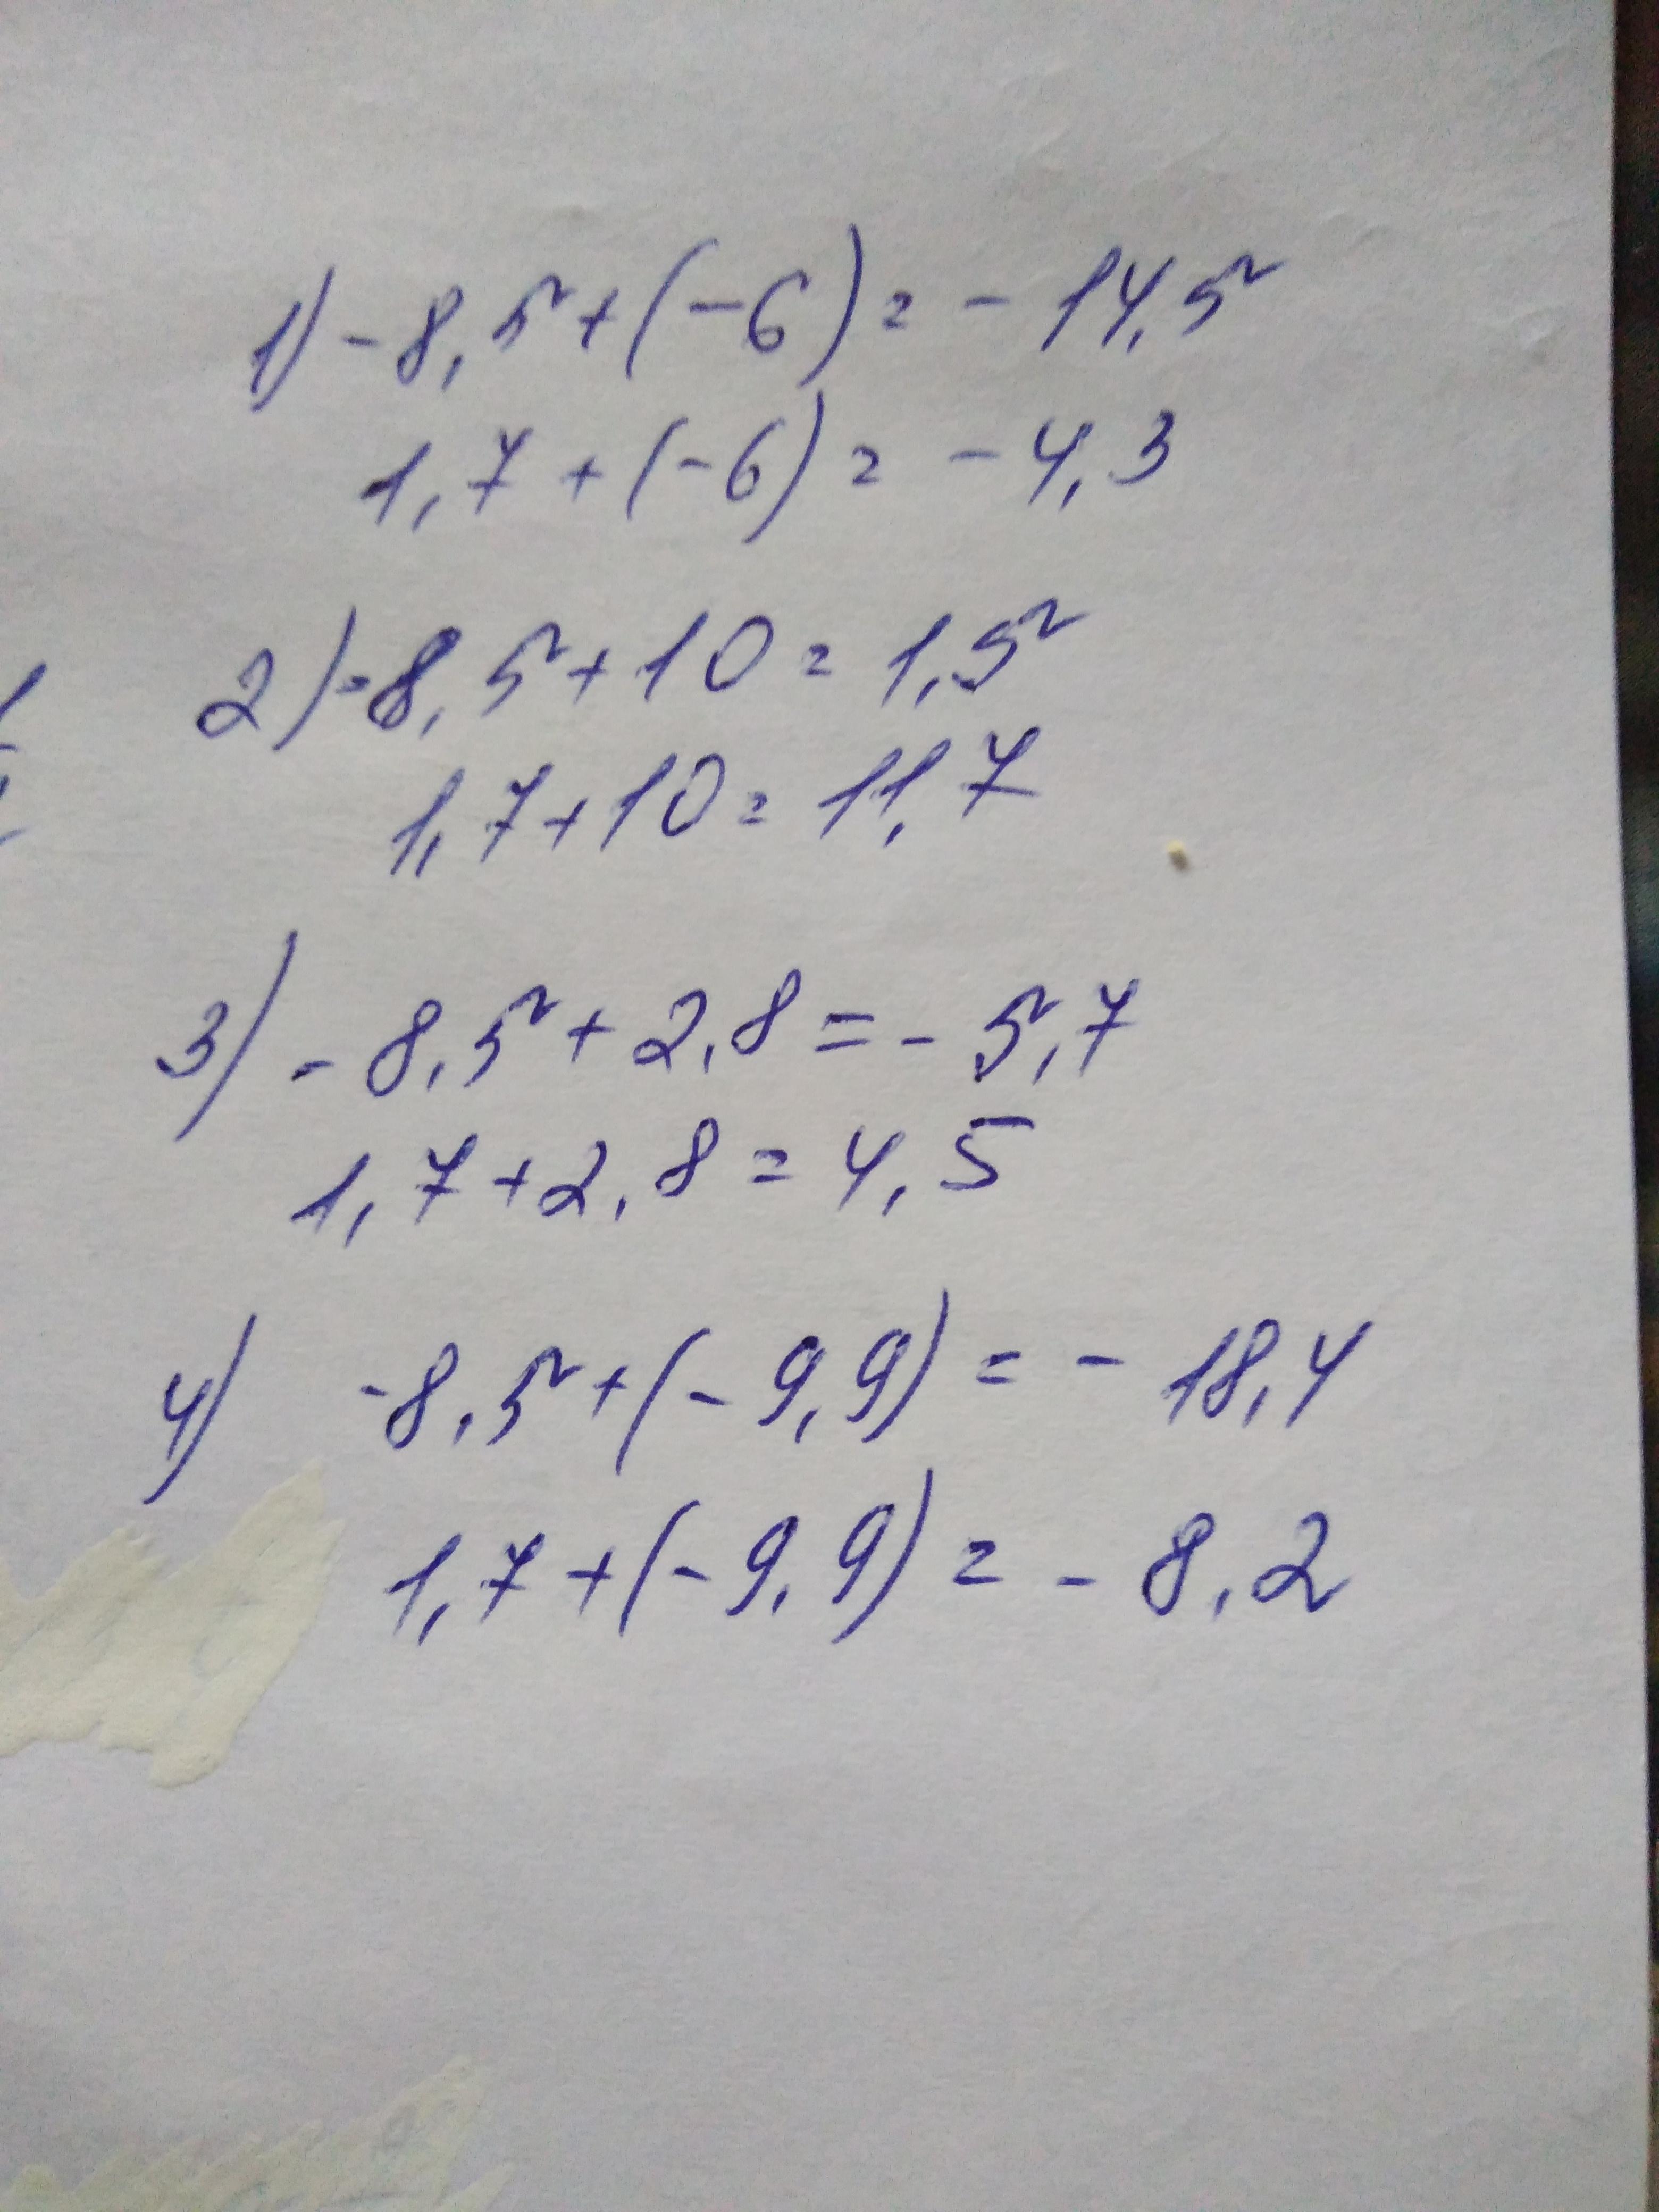 1) -8,5+(-6)=-14,5
1,7+(-6)=-4,3
2) -8,5+10=1,5
1,7+10=11,7
3) -8,5+2,8=-5,7
1,7+2,8=4,5
4) -8,5+(-9,9)=-18,4
1,7+(-9,9)=-8,2